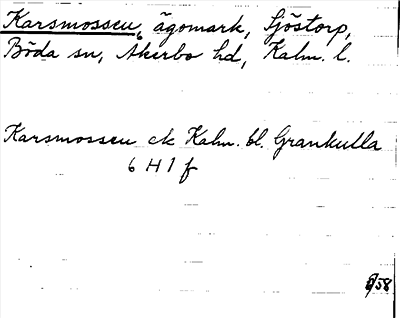 Karsmossen, ägomark, Sjöstorp,
Böda sn, Åkerbo hd, Kalm. l.
Karsmossen ek Kalm. bl. Grankulla
6 H 1 f
/58